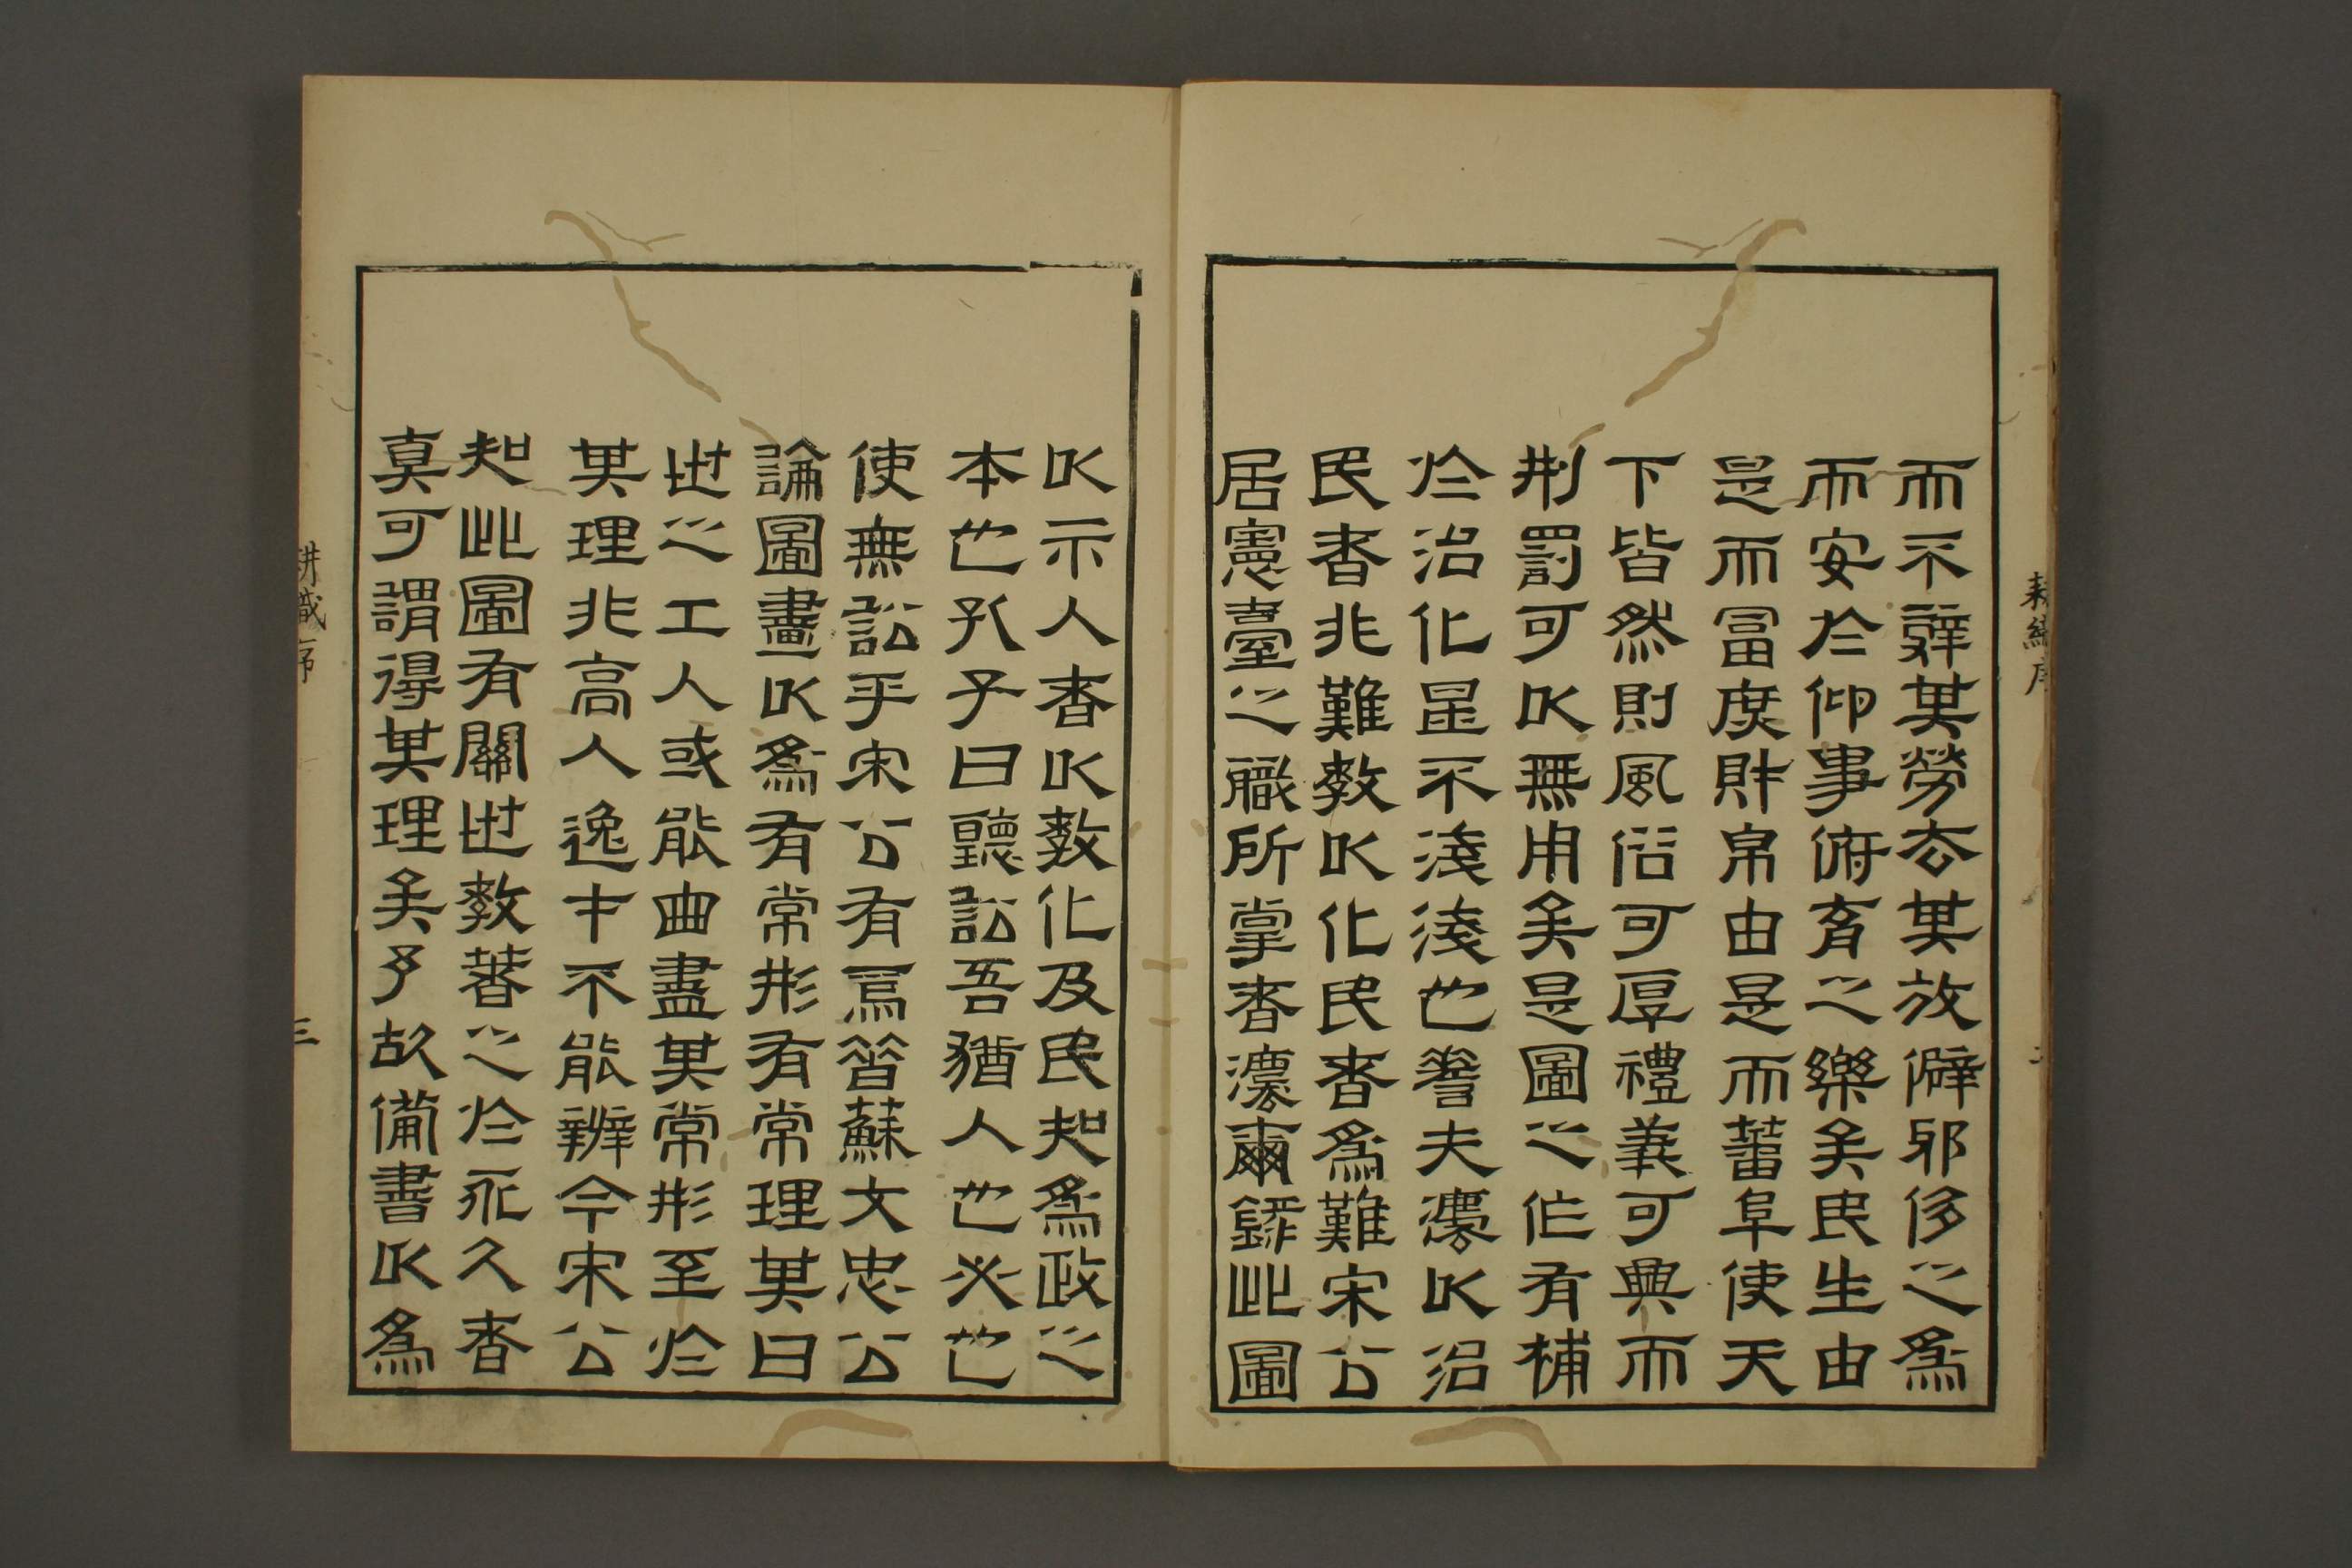 耕織序
而不辭其勞去其放僻邪侈之爲
而安於仰事俯育之樂矣民生由
是而富庶財帛由是而蕃阜使天
下皆然則風俗可厚禮義可興而
刑罰可以無用矣是圖之作有補
於治化是不淺淺也夫灋以治
民者非難教以化民者爲難宋公
居憲臺之職所掌者灋爾此圖
以示人者以教化及民知爲政之
本也孔子曰聽訟吾猶人也必也
使無訟乎宋公有焉昔蘇文忠公
論圖畫以爲有常形有常理其曰
世之工人或能曲盡其常形至於
其理非高人逸才不能辨今宋公
知此圖有關世教著之於永久者
真可謂得其理矣予故備書以爲
耕織序 三